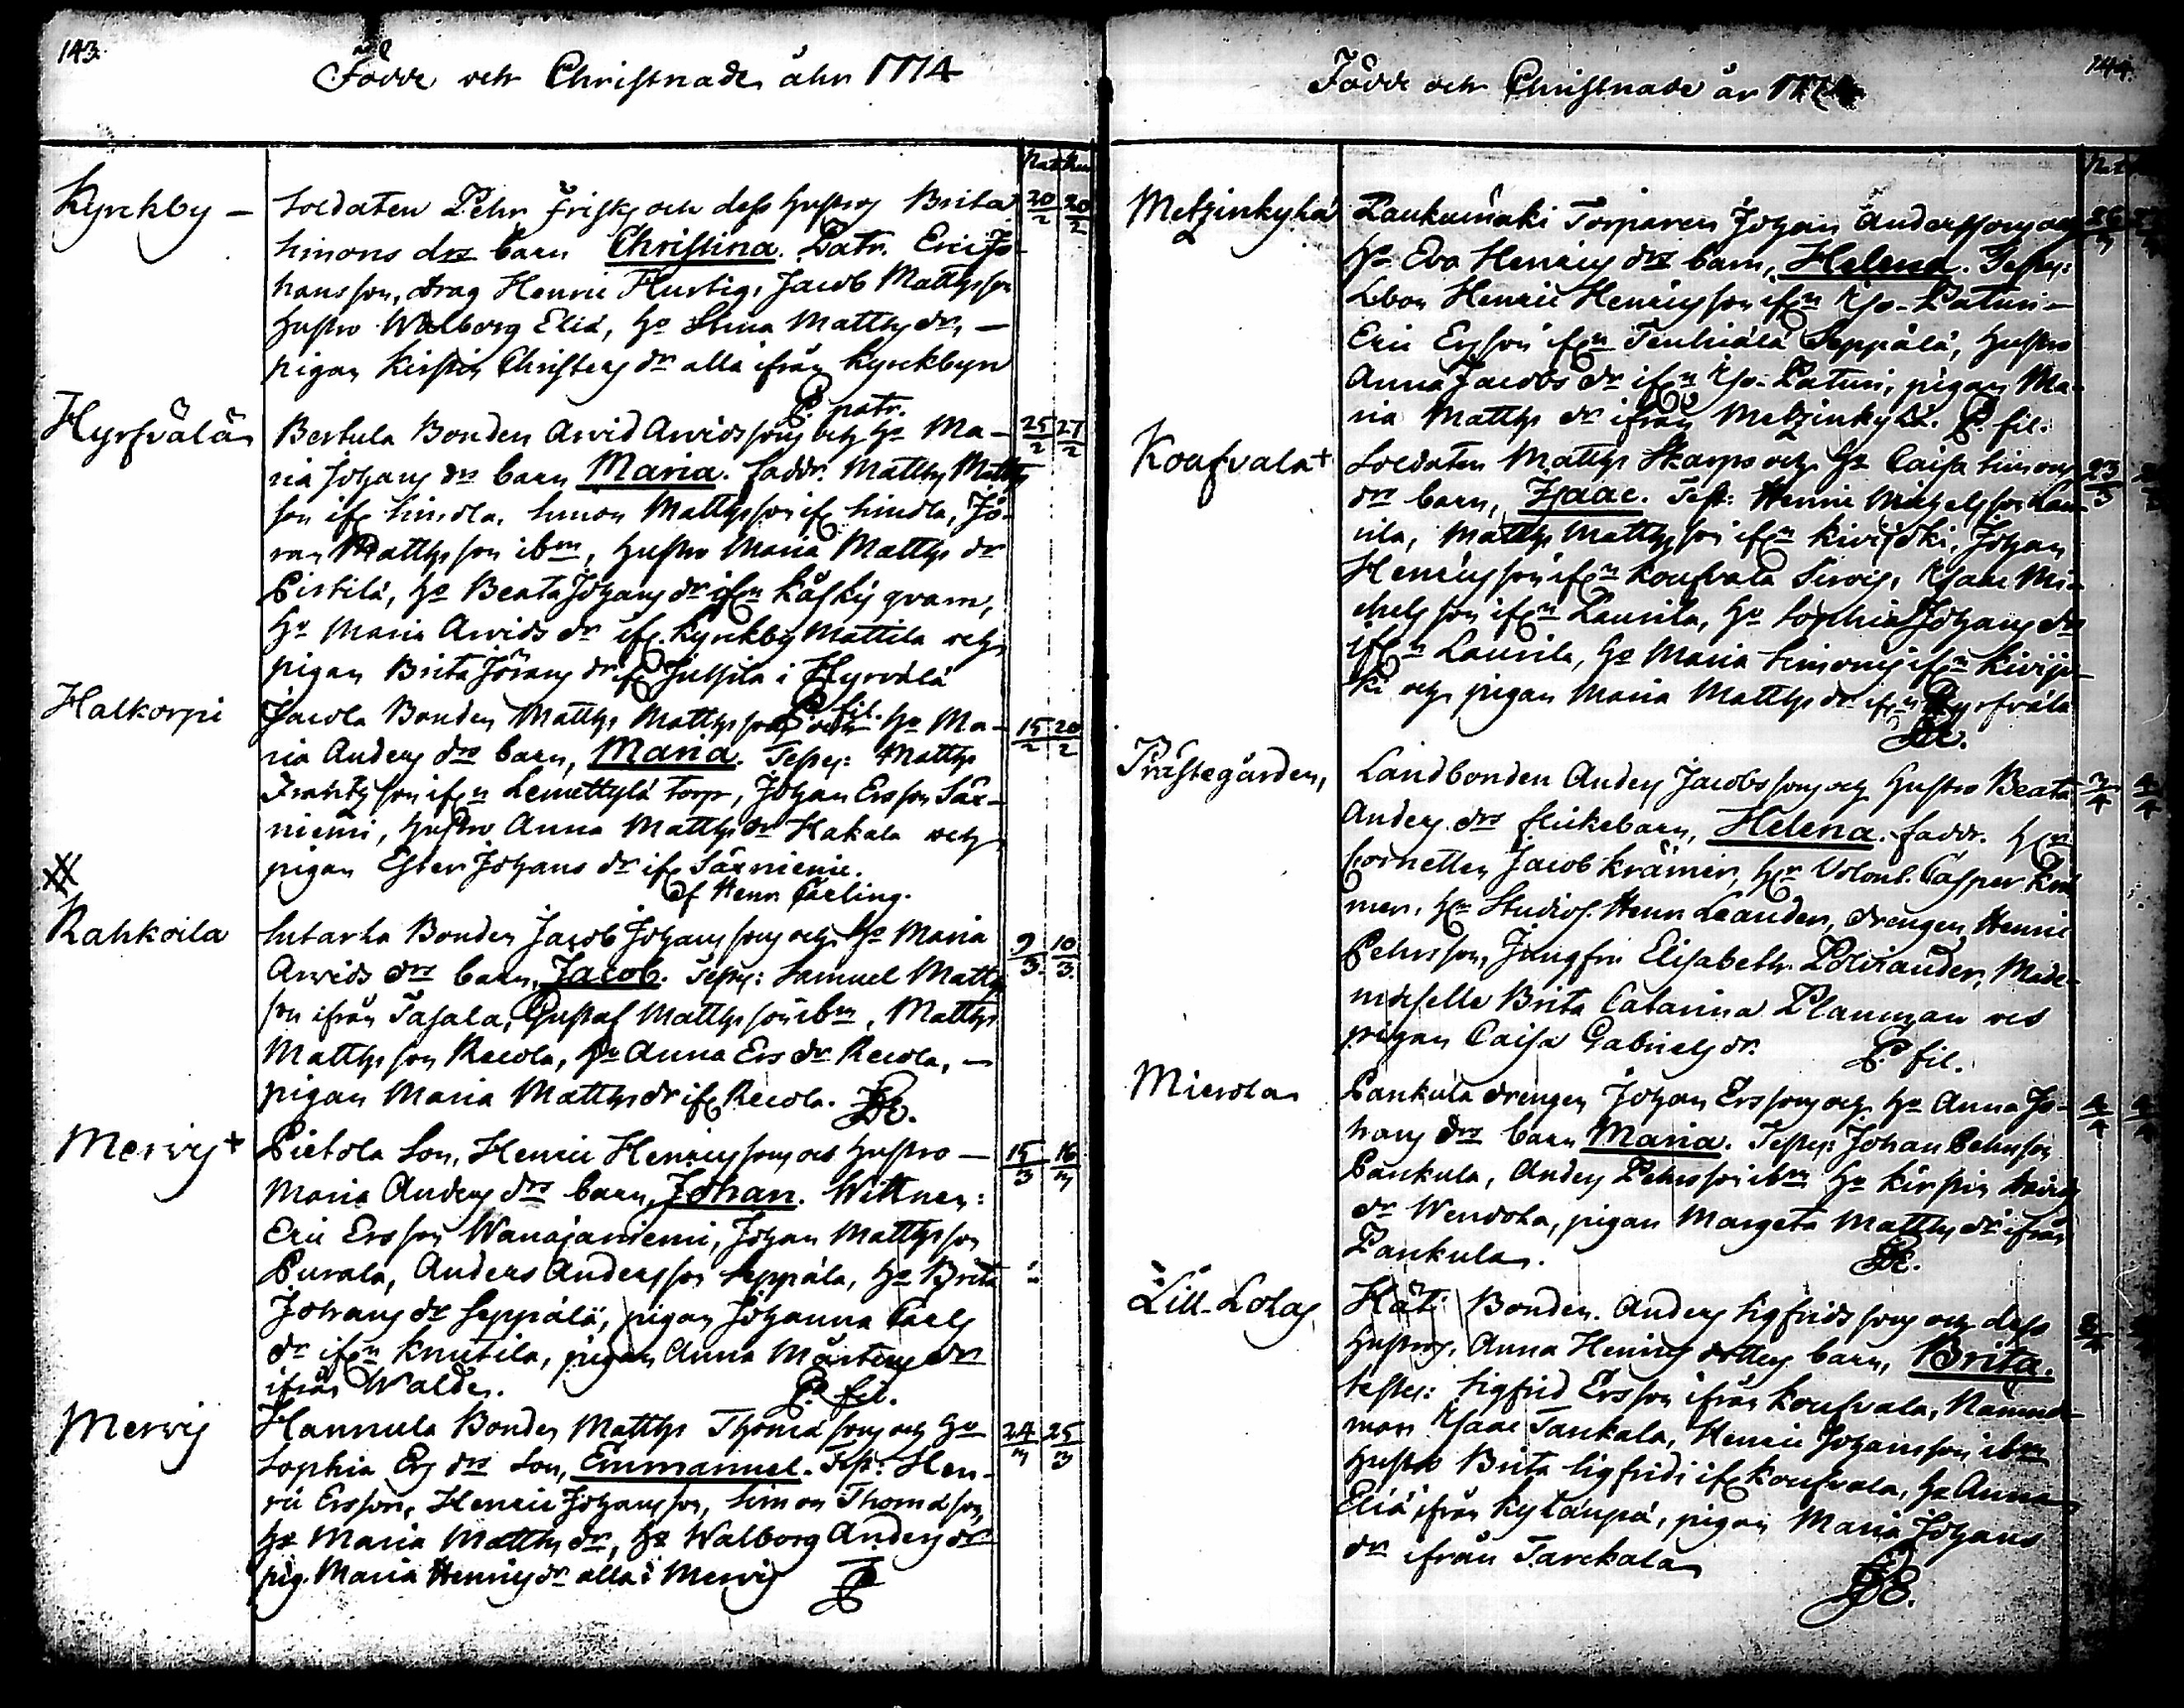 143.
Födde och Christnade åhr 1774
Nat Ren
Kyrckby — Soldaten Pehr Frisks och dess hustrus Brita 20/2 20/2
Simons drs barn Christina. Patr. Eric Jo-
hansson, drag Henric Hurtig, Jacob Mattsson
hustro Walborg Eliæ, ho Stina Matths dr, —
pigan Kirstin Christers dr alla ifrån Kyrckbyn
P. patr.
Hyrfvälä Bertula Bonden Arvid Arvidssons och ho Ma- 25/2 27/2
ria Johans drs barn Maria. fadd. Matths Matths
son ifr Simola, Simon Matthsson ifr Simola, Jö-
ran Matthsson ibm, hustro Maria Matths dr
Pistilä, ho Beata Johans dr ifrn Kåski qvarn,
ho Maria Arvids dr ifr. Kyrckby Mattila och
pigan Brita Jörans dr ifr Jussila i Hyrvälä
P. fil.
Halkorpi Jacola Bonden Matths Matthssons och ho Ma- 15/2 20/2
ria Anders drs barn, Maria. Testes: Matths
Frantsson ifrn Lemettylä torp, Johan Ersson Säx-
niemi, hustro Anna Matths dr Hakala och
pigan Ester Johans dr ifr Säxniemi.
af Henr. Carling.
Rahkoila Sutarla Bonden Jacob Johanssons och ho Maria 9/3 10/3
Arvids drs barn, Jacob. Testes: Samuel Matths
son ifrån Tasala, Gustaf Matthsson ibm, Matths
Matthsson Recola, ho Anna Ers dr Recola, —
pigan Maria Matths dr ifr Recola.
Mervis + Pietola Son, Henric Henricssons och hustro — 15/3 16/3
Maria Anders drs barn, Johan. Wittnen:
Eric Ersson Wanajaniemi, Johan Matthsson
Purala, Anders Andersson Seppälä, ho Brita
Johans dr Seppälä, pigan Johanna Carls
dr ifrn Knutila, pigan Anna Mårtens dr
ifrån Walde. P. fil.
Mervis Hannula Bonden Matths Thomæsons och ho 24/3 25/3
Sophia Ers drs Son, Emmanuel. Test: Hen-
ric Ersson, Henric Johansson, Simon Thomæson,
ho Maria Matths dr, ho Walborg Anders dr
pig. Maria Henrics dr alla i Mervis
144.
Födde och Christnade år
Nat
Metzinkylä Paukumäki Torparen Johan Anderssons och 26/3
ho Eva Henrics drs barn, Helena. Testes:
Lbon Henric Henricsson ifrn Iso-Paturi —
Eric Ersson ifrn Tenhiälä Seppälä, hustro
Anna Jacobs dr ifrn Iso-Paturi, pigan Ma-
ria Matths dr ifrån Metzinkylä. P. fil.
Koufvala + Soldaten Matths Skarps och ho Caisa Simons 23/3
drs barn, Isaac. Test: Henric Michelsson Lau-
rila, Matths Matthsson ifrn Kivijoki, Johan
Henricsson ifrn Koufvala Sirvis, Isaac Mi-
chelsson ifrn Laurila, ho Sophia Johans dr
ifrn Laurila, ho Maria Simons ifrn Kivijo-
ki och pigan Maria Matths dr ifrn Hyrfvälä
Prästegården, Landbonden Anders Jacobssons och hustro Beata 3/4 4/4
Anders drs flickebarn, Helena. fadd. Hr
Cornetten Jacob Krämer, Hr Volont. Casper Krä
mer, Hr Studios. Henr Leander, drengen Henric
Pehrsson, Jungfru Elisabeth Polviander, Made-
moiselle Brita Catarina Planman och
pigan Caisa Gabriels dr. P. fil.
Mierola Pankula drengen Johan Erssons och ho Anna Jo- 4/4 4/4
hans drs barn Maria. Testes: Johan Pehrsson
Pankula, Anders Pehrsson ibm ho Kirstin Davids
dr Wendola, pigan Margeta Matths dr ifrån
Pankula.
Lill-Lolas Häti Bonden Anders Sigfridssons och dess
hustrus, Anna Henrics dotters barn, Brita.
testes: Sigfrid Ersson ifrån Koufvala, Nämnde-
man Isaac Tankala, Henric Johansson ibm
hustro Brita Sigfrids ifr Koufvala, ho Anna
Eliæ ifrån Kylänpä, pigan Maria Johans
dr ifrån Tarckala